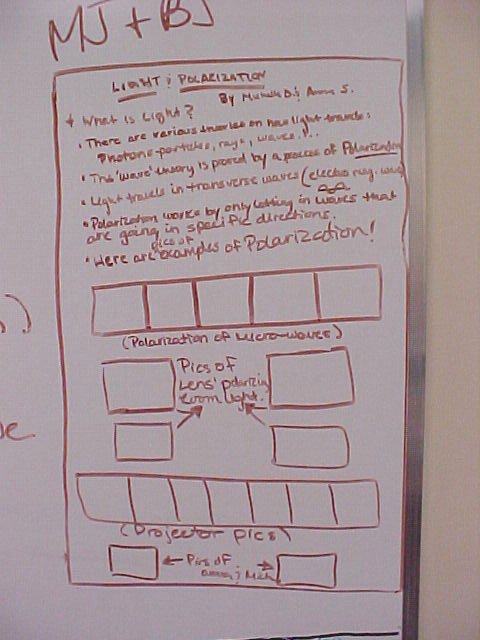 MJ + BJ
LIGHT & POLARIZATION
By Michelle D. & Anna S.
* What is Light?
• There are various theories on how light travels:
Photons-particles, rays, waves...
• This 'wave' theory is proved by a process of Polarization
• Light travels in transverse waves (electro mag. waves
• Polarization works by only letting in waves that
are going in specific directions.
• Here are pics of examples of Polarization!
(Polarization of Micro-waves)
Pics of
Lens' polarizing
room light.
(Projector pics)
Pics of
)
e